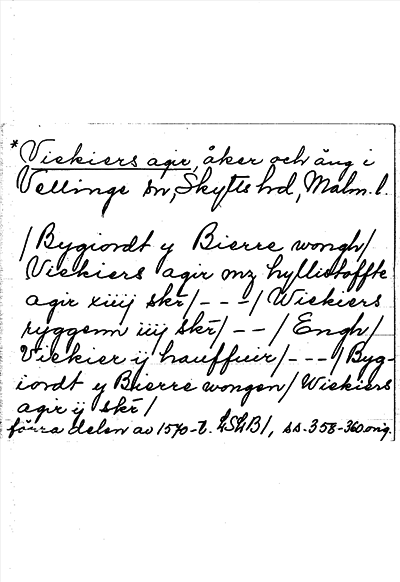 *Viekiers agir, åker och äng i
Vellinge sn, Skytts hd, Malm. l.
/Bygiordt y Bierre wongh/
Viekiers agir mz hyllistoffte
agir xiiij skr/---/Wiekiers
ryggenn iiij skr/--/Engh/
Viekier ij hauffuir/---/Byg-
iordt y Bierre wongen/Wiekiers
agir ij skr/
förra delen av 1570-t. LSLB1, ss. 358-360 orig.